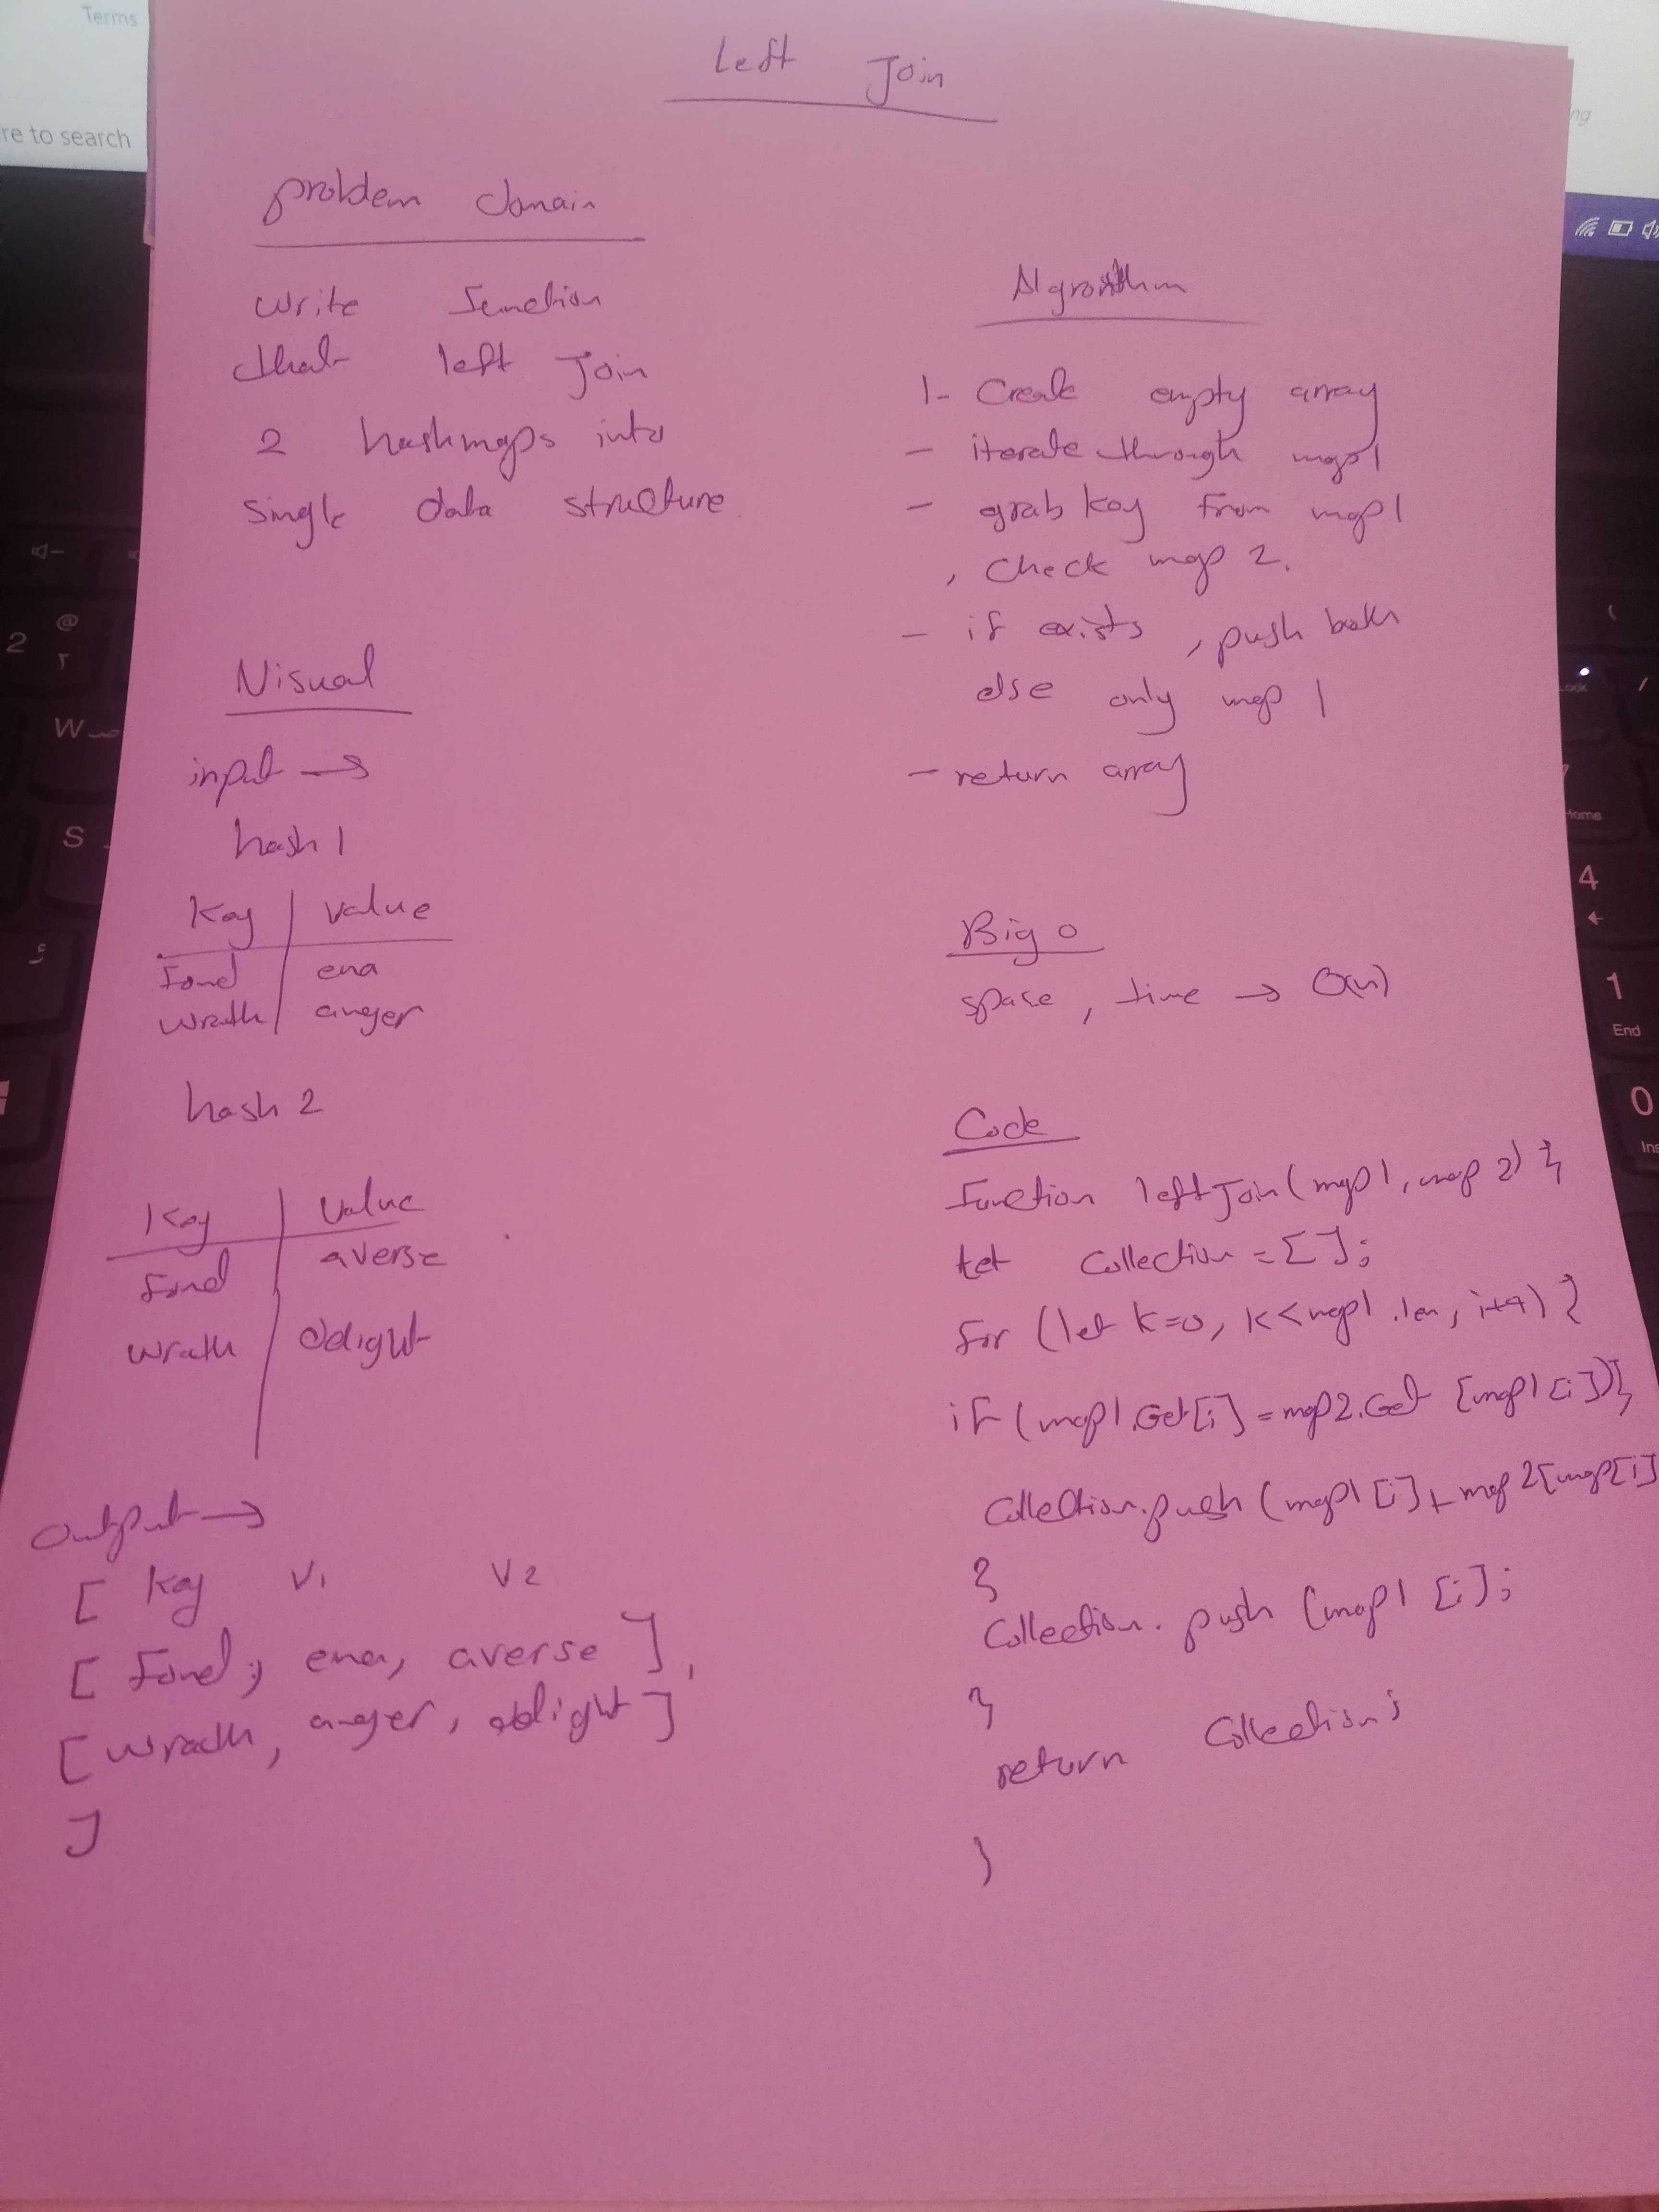 Terms
re to search
ng
Left Join
problem domain
write function
that left Join
2 hashmaps into
single data structure
Visual
input →
hash 1
Key | value
Fond | ena
wrath | anger
hash 2
Key | value
Fond | averse
wrath | delight
output →
[ Key V1 V2
[ Fond, ena, averse ],
[ wrath, anger, delight ]
]
Algrorithm
1- Create empty array
- iterate through map1
- grab key from map1
, check map 2.
- if exists, push both
else only map 1
- return array
Big O
space, time → O(n)
Code
Function leftJoin(map1, map2) {
let Collection = [];
for (let k=0, k<map1.len, i++) {
if (map1.Get[i] = map2.Get [map1[i])){
Collection.push (map1[i] + map2[map[i]
}
Collection.push (map1 [i];
}
return Collection;
}
2 @
W ص
S
4
←
1
End
0
Ins
Home
Lock
/